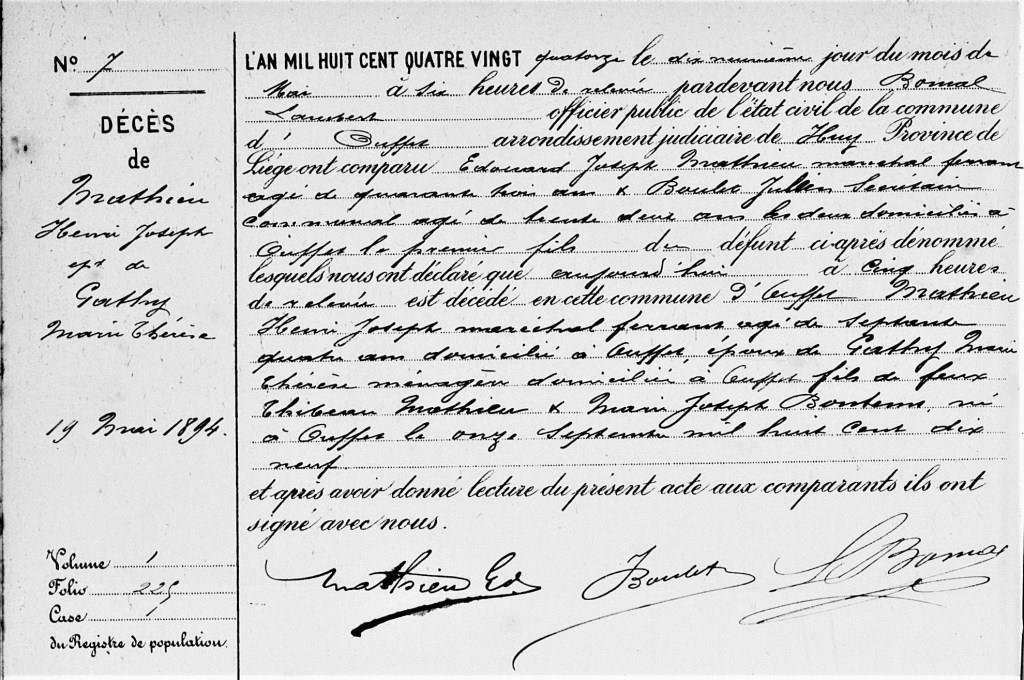 N° 7
DÉCÈS
de
Mathieu
Henri Joseph
ép. de
Gathy
Marie Thérèse
19 Mai 1894.
Volume 1
Folio 225
Case 1
du Registre de population.
L'AN MIL HUIT CENT QUATRE VINGT quatorze le dix neuvième jour du mois de
Mai à six heures de relevée pardevant nous Bomal
Lambert officier public de l'état civil de la commune
d' Ouffet arrondissement judiciaire de Huy Province de
Liége ont comparu Edouard Joseph Mathieu maréchal ferrant
agé de quarante trois ans & Boulet Julien Secrétaire
communal agé de trente deux ans les deux domiciliés à
Ouffet le premier fils du défunt ci-après dénommé
lesquels nous ont déclaré que aujourd'hui à cinq heures
de relevée est décédé en cette commune d'Ouffet Mathieu
Henri Joseph maréchal ferrant agé de septante
quatre ans domicilié à Ouffet, époux de Gathy Marie
Thérèse ménagère domiciliée à Ouffet fils de feux
Thibeau Mathieu & Marie Joseph Bontems, né
à Ouffet le onze Septembre mil huit cent dix
neuf
et après avoir donné lecture du présent acte aux comparants ils ont
signé avec nous.
Mathieu Ed. J Boulet L Bomal